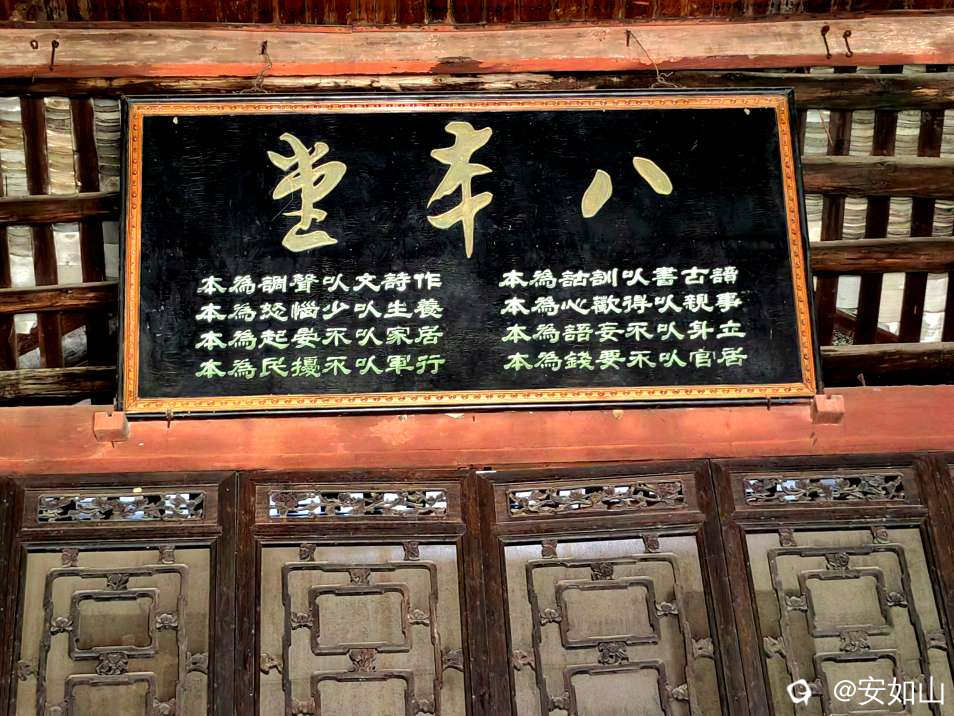 八本堂
讀古書以訓詁為本
作詩文以聲調為本
事親以得歡心為本
養生以少惱怒為本
立身以不妄語為本
居家以不晏起為本
居官以不要錢為本
行軍以不擾民為本
@安如山